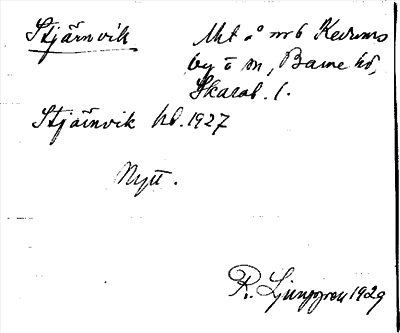 Stjärnvik
Uht å nr 6 Kedums
by o sn, Barne hd,
Skarab. l.
Stjärnvik hd. 1927
Nytt.
R. Ljunggren 1929